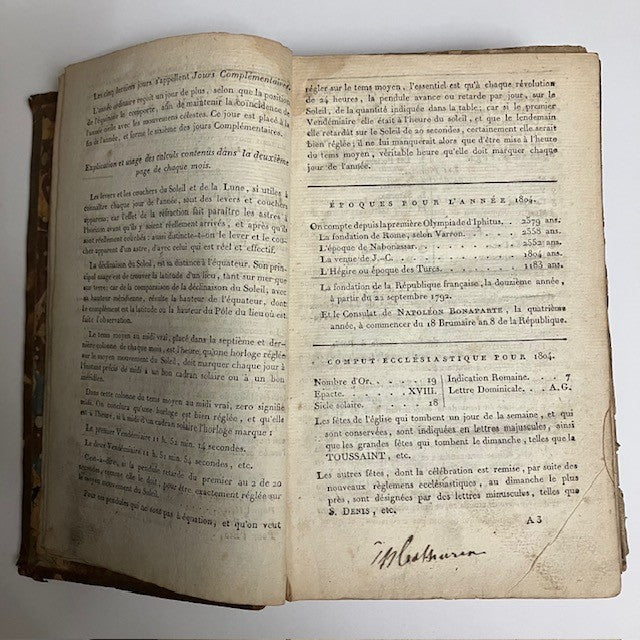 Les cinq derniers jours s'appellent Jours Complémentaires.
L'année ordinaire reçoit un jour de plus, selon que la position
de l'équinoxe le comporte, afin de maintenir la coïncidence de
l'année civile avec les mouvemens célestes. Ce jour est placé à la
fin de l'année, et forme le sixième des jours Complémentaires.
Explication et usage des calculs contenus dans la deuxième
page de chaque mois.
Les levers et les couchers du Soleil et de la Lune, si utiles à
connaître chaque jour de l'année, sont des levers et couchers
apparens; car l'effet de la réfraction fait paraître les astres à
l'horizon avant qu'ils y soient réellement arrivés, et après qu'ils
sont réellement couchés: aussi distingue-t-on le lever et le cou-
cher apparent d'un astre, d'avec celui qui est réel et effectif.
La déclinaison du Soleil, est sa distance à l'équateur. Son prin-
cipal usage est de trouver la latitude d'un lieu, tant sur mer que
sur terre; car de la comparaison de la déclinaison du Soleil, avec
sa hauteur méridienne, résulte la hauteur de l'équateur, dont
le complément est la latitude ou la hauteur du Pôle du lieu où est
faite l'observation.
Le tems moyen au midi vrai, placé dans la septième et der-
nière colonne de chaque mois, est l'heure, qu'une horloge réglée
sur le moyen mouvement du Soleil, doit marquer chaque jour à
l'instant précis de midi à un bon cadran solaire ou à un bon
méridien.
Dans cette colonne du tems moyen au midi vrai, zero signifie
midi. On conclura qu'une horloge est bien réglée, et qu'elle est
à l'heure, si à midi d'un cadran solaire l'horloge marque:
Le premier Vendémiaire 11 h. 52 min. 14 secondes.
Le deux Vendémiaire 11 h. 51 min. 54 secondes, etc.
C'est-à-dire, si la pendule retarde du premier au 2 de 20
secondes, comme elle le doit, pour être exactement réglée sur
le moyen mouvement du Soleil.
Pour les pendules qui ne sont pas à équation, et qu'on veut
régler sur le tems moyen, l'essentiel est qu'à chaque révolution
de 24 heures, la pendule avance ou retarde par jour, sur le
Soleil, de la quantité indiquée dans la table; car si le premier
Vendémiaire elle était à l'heure du soleil, et que le lendemain
elle retardât sur le Soleil de 20 secondes, certainement elle serait
bien réglée; il ne lui manquerait alors que d'être mise à l'heure
du tems moyen, véritable heure qu'elle doit marquer chaque
jour de l'année.
ÉPOQUES POUR L'ANNÉE 1804.
On compte depuis la première Olympiade d'Iphitus: 2579 ans.
La fondation de Rome, selon Varron. . . . . . 2558 ans.
L'époque de Nabonassar. . . . . . . . 2552 ans.
La venue de J.-C. . . . . . . . . 1804 ans.
L'Hégire ou époque des Turcs. . . . . . 1183 ans.
La fondation de la République française, la douzième année,
à partir du 22 septembre 1792.
Et le Consulat de NAPOLÉON BONAPARTE, la quatrième
année, à commencer du 18 Brumaire an 8 de la République.
COMPUT ECCLÉSIASTIQUE POUR 1804.
Nombre d'Or. . . . . . 19 Indication Romaine. . . 7
Epacte. . . . . . XVIII. Lettre Dominicale. . A. G.
Sicle solaire. . . . . . 18
Les fêtes de l'église qui tombent un jour de la semaine, et qui
sont conservées, sont indiquées en lettres majuscules, ainsi
que les grandes fêtes qui tombent le dimanche, telles que la
TOUSSAINT, etc.
Les autres fêtes, dont la célébration est remise, par suite des
nouveaux règlemens ecclésiastiques, au dimanche le plus
près, sont désignées par des lettres minuscules, telles que
S. DENIS, etc.
A 3